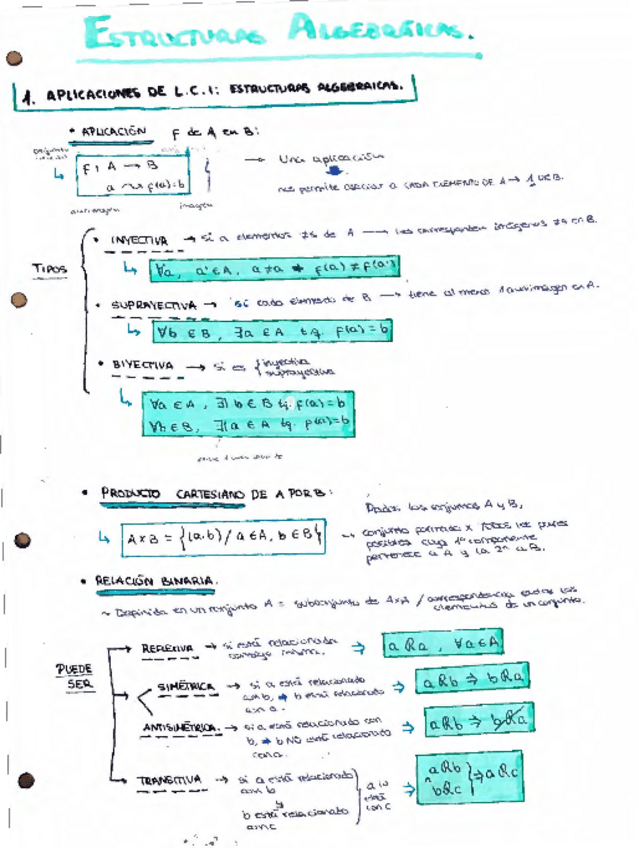 ESTRUCTURAS ALGEBRAICAS.
1. APLICACIONES DE L.C.I: ESTRUCTURAS ALGEBRAICAS.
• APLICACIÓN f de A en B:
f: A → B → Una aplicación
a ⤳ f(a)=b nos permite asociar a CADA ELEMENTO DE A → 1 DE B.
imagen
TIPOS
• INYECTIVA → si a elementos ≠s de A → les corresponden imágenes ≠s en B.
∀a, a' ∈ A, a ≠ a' ⇒ f(a) ≠ f(a')
• SUPRAYECTIVA → si cada elemento de B → tiene al menos 1 antiimagen en A.
∀b ∈ B, ∃a ∈ A tq. f(a) = b
• BIYECTIVA → si es { inyectiva
suprayectiva
∀a ∈ A, ∃| b ∈ B tq. f(a) = b
∀b ∈ B, ∃| a ∈ A tq. f(a) = b
• PRODUCTO CARTESIANO DE A POR B:
Dados los conjuntos A y B,
A×B = {(a,b) / a ∈ A, b ∈ B} → conjunto formado x todos los pares
posibles cuya 1ª componente
pertenece a A y la 2ª a B.
• RELACIÓN BINARIA.
~ Definida en un conjunto A = subconjunto de A×A / correspondencia entre los
elementos de un conjunto.
PUEDE SER
REFLEXIVA → si está relacionada
consigo misma. ⇒ aRa, ∀a∈A
SIMÉTRICA → si a está relacionado
con b, ⇒ b está relacionado
con a. ⇒ aRb ⇒ bRa
ANTISIMÉTRICA. → si a está relacionado con
b, ⇒ b NO está relacionado
con a. ⇒ aRb ⇒ b~~R~~a
TRANSITIVA → si a está relacionado
con b
y
b está relacionado
con c
a
está
con c
⇒ aRb
∧ bRc } ⇒ aRc